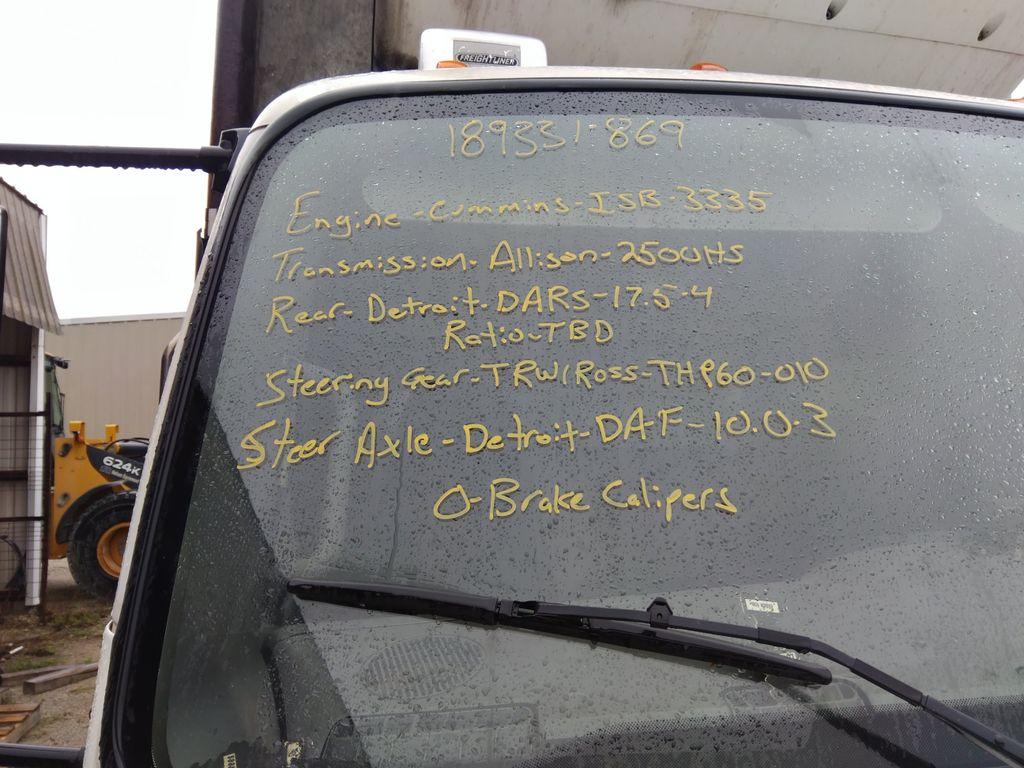 FREIGHTLINER
189331-869
Engine-Cummins-ISB-3335
Transmission-Allison-2500HS
Rear-Detroit-DARS-17.5-4
Ratio-TBD
Steering Gear-TRW/Ross-THP60-010
Steer Axle-Detroit-DA-F-10.0-3
0-Brake Calipers
624K